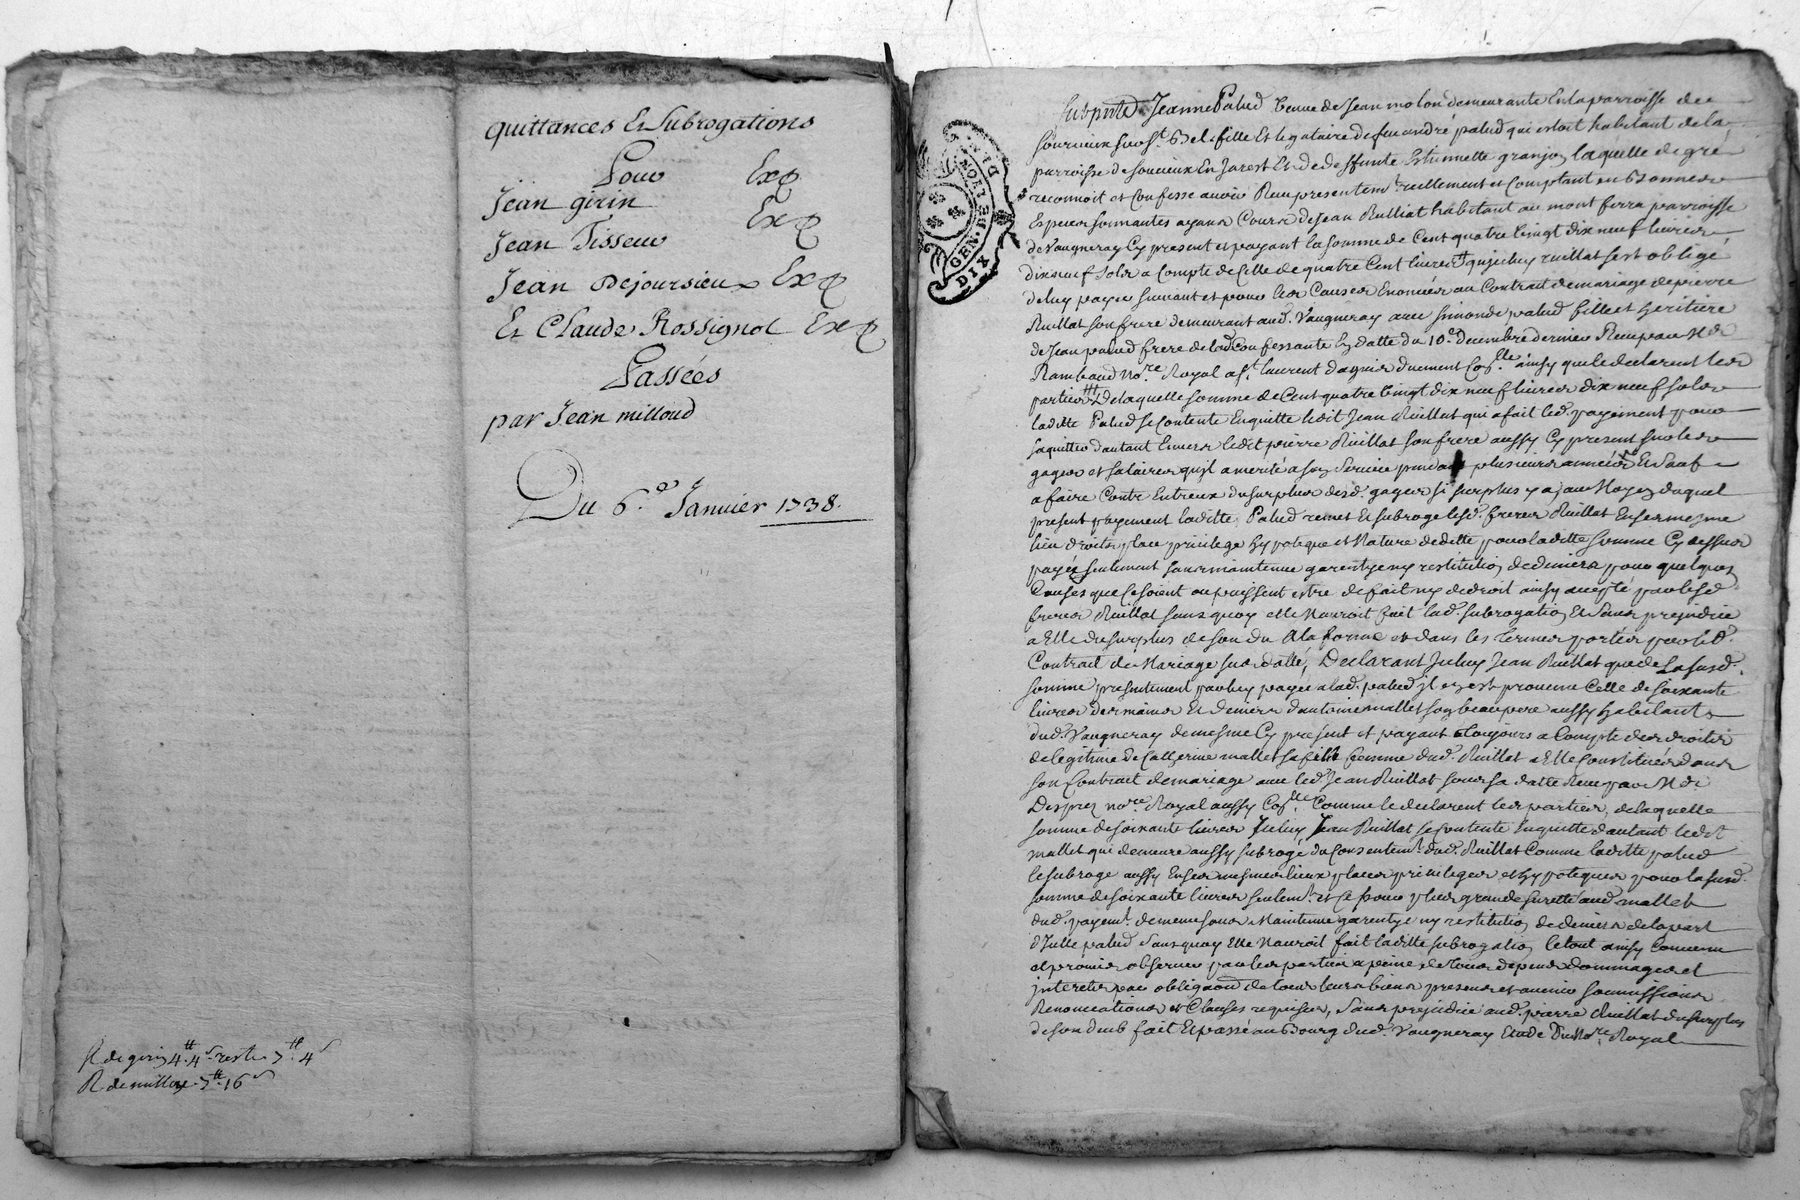 quittances Et Subrogations
Pour
Jean girin Exp
Jean Tisseur Exp
Jean Dejoursieux Exp
Et Claude Rossignol Exp
Passées
par Jean milloud
Du 6e Janvier 1738.
R de girin 4tt 4s reste 7tt 4s
R de millou 7tt 16s
GEN. DE LYON
DIX
fut pnte Jeanne Palud veuve de Jean molon demeurante En la parroisse de
fille Et legataire de feu andré palud qui estoit habitant de la
parroisse de soucieux En Jarest Et de deffunte Estiennette granjon laquelle de gré
reconnoit et confesse avoir Receu presentemt reellement et comptant en bonnes
Especes sonnantes ayans Cours de Jean Rulliat habitant au mont ferra parroisse
de Vaugneray Cy present et payant la somme de Cent quatre vingt dix neuf livres
dix neuf sols a Compte de Celle de quatre Cent livres que ruillat s'est obligé
de luy payer suivant et pour les Causes Enoncées au Contrat de mariage de pierre
Ruillat son frere demeurant aud. Vaugneray avec simonde palud fille et heritiere
de Jean palud frere de lad Confessante En datte du 10e Decembre dernier Receu par Me
Rambaud Nore Royal a St laurent dagnier duement Coslle ainsy que le declarent les
parties De laquelle somme de Cent quatre vingt dix neuf livres dix neuf sols
ladite Palud se Contente En quitte ledit Jean Ruillat qui a fait led. payement pour
saquitter dautant Envers ledit pierre Ruillat son frere aussy Cy present sur les
gages et salaires quil a merité a son service pendant plusieurs années Et Sauf
a faire Compte Entreux du surplus desd. gages si surplus y a, au Moyen duquel
present payement ladite Palud remet Et subroge lesd. freres Ruillat En ses mesme
lieu droits place privilege hypoteque et Nature de dette pour ladite somme Cy dessus
payée seulement sans maintenue garentye ny restitution de deniers pour quelques
Causes que ce soient ou puissent estre de fait ny de droit ainsy accepté par lesd
freres Ruillat sans quoy elle Nauroit fait lad. subrogation Et Sans prejudice
a Elle du surplus de son du a la forme et dans les termes portés par led.
Contrat de Mariage sus datté, Declarant Icelluy Jean Ruillat que de la susd.
somme presentement par luy payée a lad. palud il en est provenue Celle de soixante
livres des mains Et deniers dantoine mallet son beaupere aussy habitant
dud. Vaugneray de mesme Cy présent et payant toujours a Compte des droits
de légitime de Catherine mallet sa fille femme dud. Ruillat a Elle Constituée dans
son Contrat de mariage avec led. Jean Ruillat sous sa datte Receu par Me
Desprez nore Royal aussy Coslle Comme le declarent les parties, de laquelle
somme de soixante livres Iceluy Jean Ruillat se Contente En quitte dautant ledit
mallet qui demeure aussy subrogé du Consentemt dud. Ruillat Comme ladite palud
le subroge aussy En ses mesmes lieux places privileges et hypoteques pour la susd.
somme de soixante livres seulemt et Ce pour plus grande sureté aud mallet
dud. payemt de meme sans Maintenue garentye ny restitution de deniers de la part
d'Icelle palud sans quoy Elle Nauroit fait ladite subrogation le tout ainsy Convenu
et promis observer par les parties a peine de tous depens dommages et
interets par obligaon de tous leurs biens presens et avenir soumissions
Renonciations et Clauses requises, sans prejudice aud. pierre Ruillat du surplus
de son dub fait Et passé au Bourg dud. Vaugneray Etude Du Nore Royal